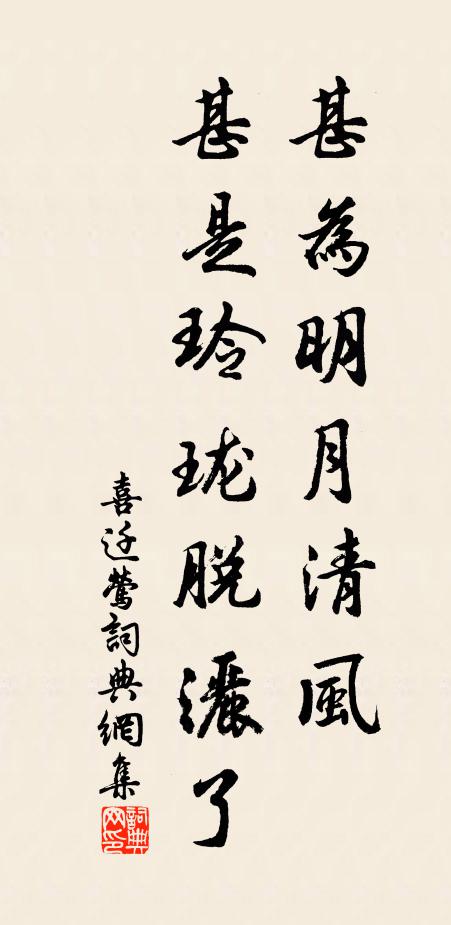 甚為明月清風
甚是玲珑脫灑了
喜迁鶯詞典網集
詞典网印